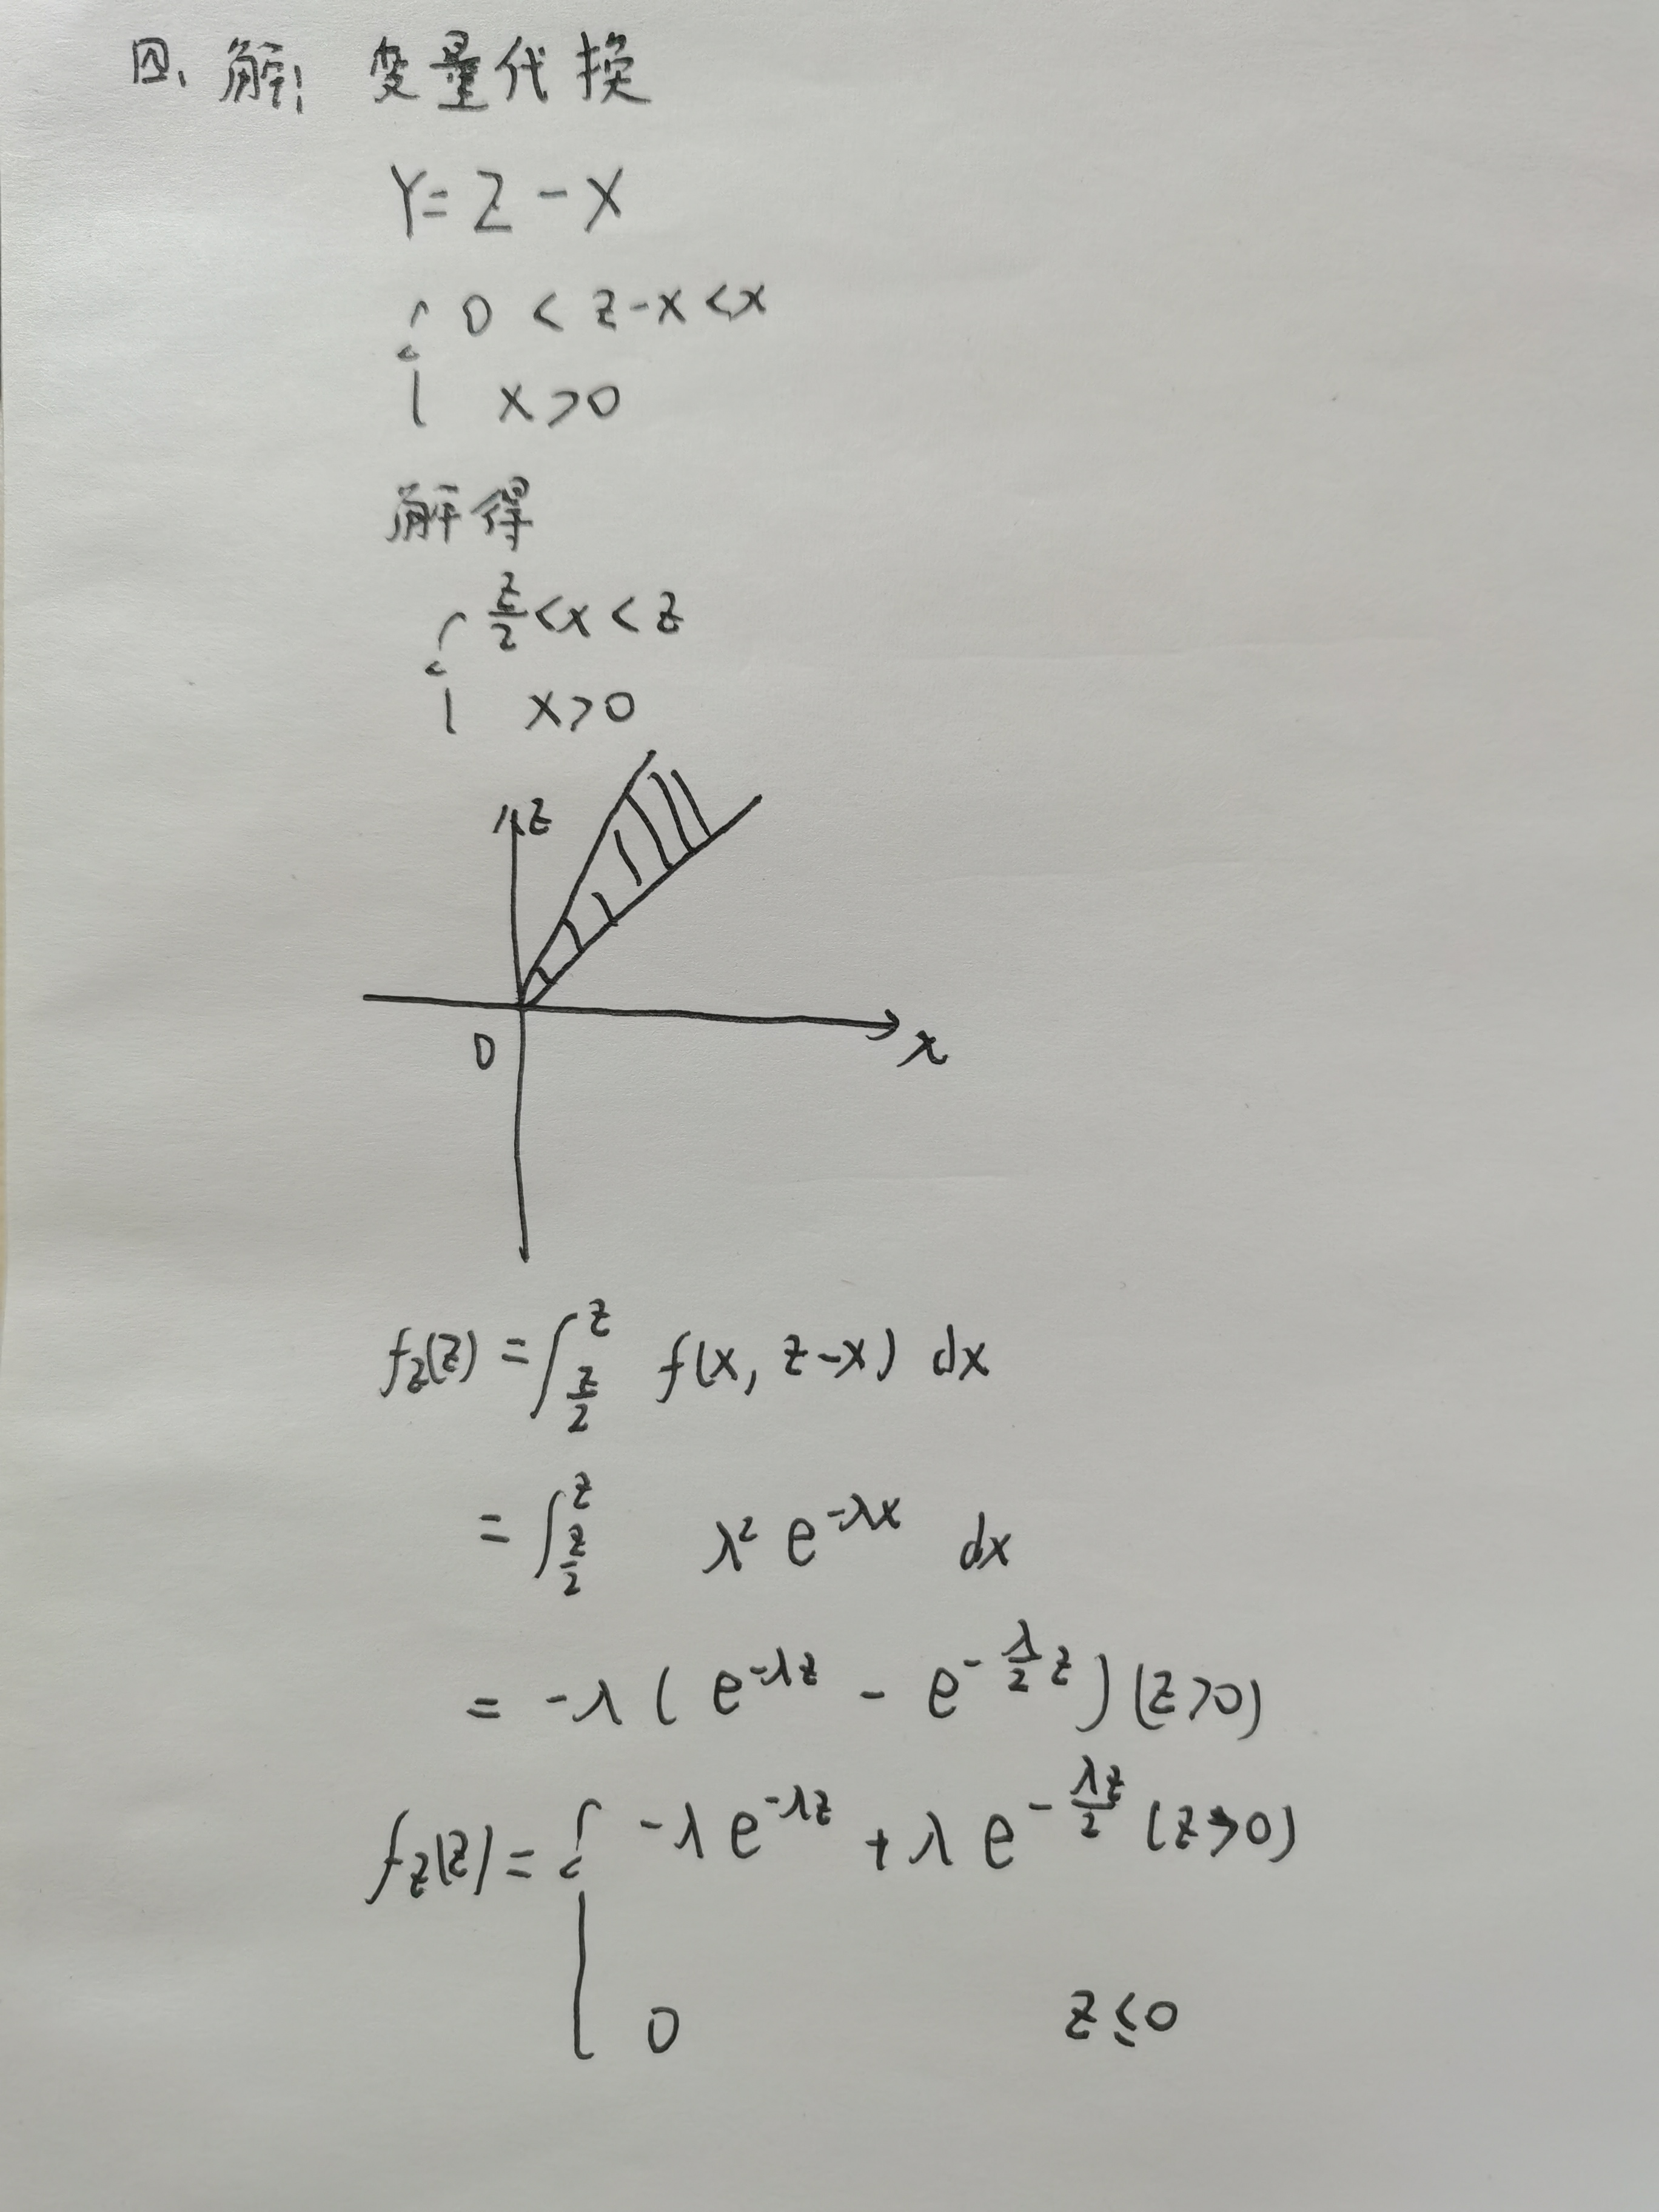 四、解: 变量代换
Y = Z - X
{ 0 < z-x < x
x > 0
解得
{ z/2 < x < z
x > 0
z
0
x
f_Z(z) = ∫_{z/2}^{z} f(x, z-x) dx
= ∫_{z/2}^{z} λ² e^{-λx} dx
= -λ ( e^{-λz} - e^{-λ/2 z} ) (z>0)
f_Z(z) = { -λ e^{-λz} + λ e^{-λz/2} (z>0)
0 z ≤ 0